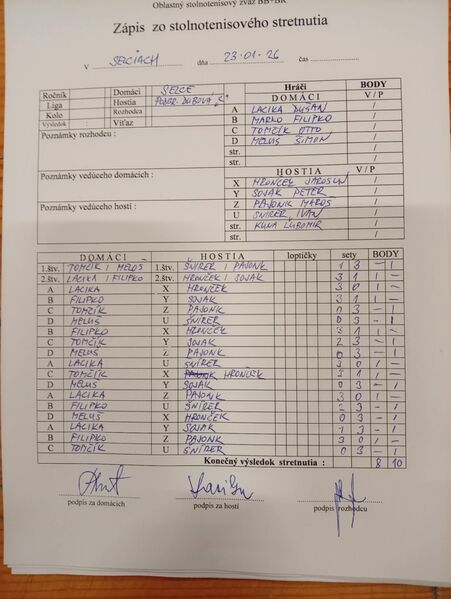 Oblastný stolnotenisový zväz BB+BR
Zápis zo stolnotenisového stretnutia
V SELCIACH dňa 23.01.26
Ročník Domáci SELCE
Liga Hostia PODR. DUBOVÁ "C"
Kolo Rozhodca
Výsledok : Víťaz
Poznámky rozhodcu :
Poznámky vedúceho domácich :
Poznámky vedúceho hostí :
Hráči BODY
DOMÁCI V / P
A LACIKA DUŠAN /
B MARKO FILIPKO /
C TOMČÍK OTTO /
D MELUŠ ŠIMON /
str. /
str. /
HOSTIA V / P
X HRONČEK JAROSLAV /
Y SOJAK PETER /
Z PAJONK MAROŠ /
U ŠNÍRER, IVAN /
str. KUNA ĽUBOMÍR /
str. /
DOMÁCI HOSTIA loptičky sety BODY
1.štv. TOMČÍK / MELUŠ 1.štv. ŠNÍRER / PAJONK 1 3 - 1
2.štv. LACIKA / FILIPKO 2.štv. HRONČEK / SOJAK 3 1 1 -
A LACIKA X HRONČEK 3 0 1 -
B FILIPKO Y SOJAK 3 1 1 -
C TOMČÍK Z PAJONK 0 3 - 1
D MELUŠ U ŠNÍRER 0 3 - 1
B FILIPKO X HRONČEK 3 1 1 -
C TOMČÍK Y SOJAK 2 3 - 1
D MELUŠ Z PAJONK 0 3 - 1
A LACIKA U ŠNÍRER 3 0 1 -
C TOMČÍK X HRONČEK 3 1 1 -
D MELUŠ Y SOJAK 0 3 - 1
A LACIKA Z PAJONK 3 0 1 -
B FILIPKO U ŠNÍRER 2 3 - 1
D MELUŠ X HRONČEK 0 3 - 1
A LACIKA Y SOJAK 1 3 - 1
B FILIPKO Z PAJONK 3 0 1 -
C TOMČÍK U ŠNÍRER 0 3 - 1
Konečný výsledok stretnutia : 8 10
podpis za domácich podpis za hostí podpis rozhodcu